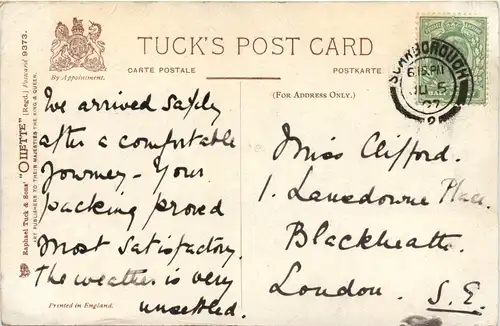 TUCK'S POST CARD
CARTE POSTALE
POSTKARTE
By Appointment.
(FOR ADDRESS ONLY.)
Raphael Tuck & Sons' "OILETTE" (Regd.) Postcard 9373.
ART PUBLISHERS TO THEIR MAJESTIES THE KING & QUEEN.
Printed in England.
SCARBOROUGH
07
2
We arrived safely
after a comfortable
journey - Your
packing proved
most satisfactory.
The weather is very
unsettled.
Miss Clifford.
1. Lansdowne Place.
Blackheath.
London. S.E.